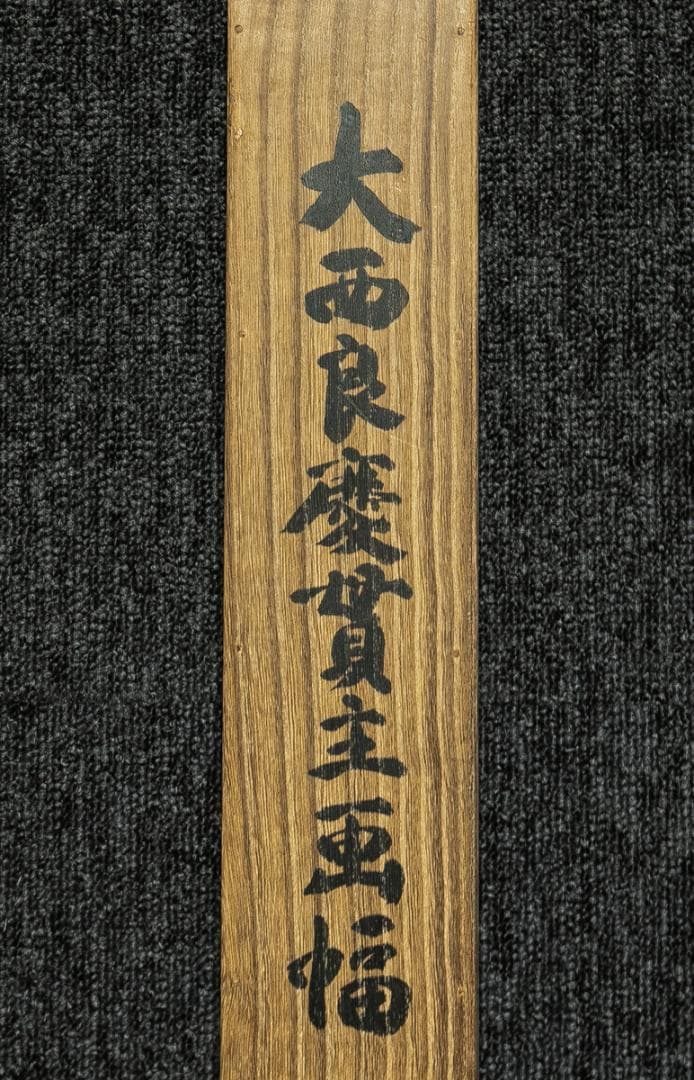 大西良慶貫主画幅